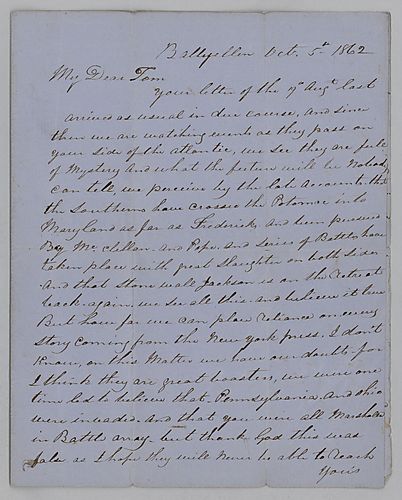 Ballyellen Oct. 5th 1862
My Dear Tom
your letter of the 19th Augt last
arrived as usual in due course, and since
then we are watching events as they pass on
your side of the atlantic, we see they are full
of Mystery And what the future will be Nobody
can tell we perceive by the late Accounts that
the Southerns have crossed the Potomac into
Maryland as far as Frederick, and been pursued
By Mc clellan and Pope, and series of Battels have
taken place with great Slaughter on both Sides
And that Stone wall Jackson is on the retreat
back again, we see all this and believe it true
But how far we can place reliance on every
story coming from the New york press, I don't
Know, on this Matter we have our doubts for
I think they are great boasters, we were one
time led to believe that Pennsylvania and Ohio
were invaded, And that you were all Marshalled
in Battel array but thank God this was
false as I hope they will never be able to reach
Yours